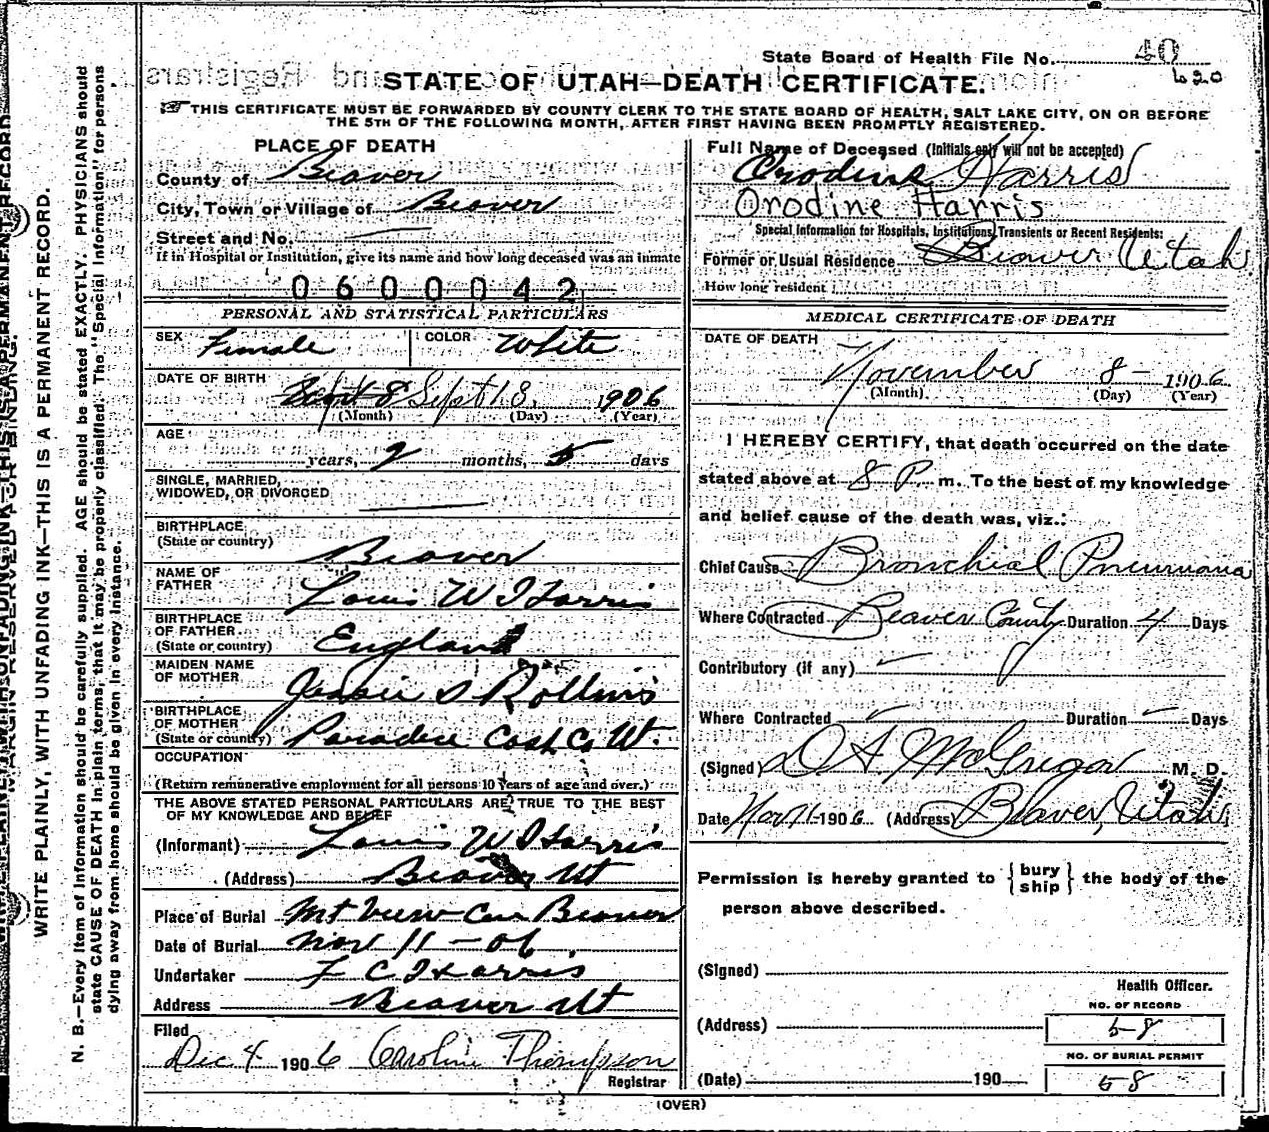 State Board of Health File No. 40
620
STATE OF UTAH—DEATH CERTIFICATE.
THIS CERTIFICATE MUST BE FORWARDED BY COUNTY CLERK TO THE STATE BOARD OF HEALTH, SALT LAKE CITY, ON OR BEFORE
THE 5TH OF THE FOLLOWING MONTH, AFTER FIRST HAVING BEEN PROMPTLY REGISTERED.
WRITE PLAINLY, WITH UNFADING INK—THIS IS A PERMANENT RECORD.
N. B.—Every item of information should be carefully supplied. AGE should be stated EXACTLY. PHYSICIANS should
state CAUSE OF DEATH in plain terms, that it may be properly classified. The "Special Information" for persons
dying away from home should be given in every instance.
PLACE OF DEATH
County of Beaver
City, Town or Village of Beaver
Street and No.
If in Hospital or Institution, give its name and how long deceased was an inmate
0600042
PERSONAL AND STATISTICAL PARTICULARS
SEX Female COLOR White
DATE OF BIRTH Sept 8 Sept 18, 1906
(Month) (Day) (Year)
AGE
years, 2 months, 5 days
SINGLE, MARRIED,
WIDOWED, OR DIVORCED
BIRTHPLACE
(State or country) Beaver
NAME OF
FATHER Louis W Harris
BIRTHPLACE
OF FATHER
(State or country) England
MAIDEN NAME
OF MOTHER Jessie Rollins
BIRTHPLACE
OF MOTHER
(State or country) Paradise Cash Co Ut.
OCCUPATION
(Return remunerative employment for all persons 10 years of age and over.)
THE ABOVE STATED PERSONAL PARTICULARS ARE TRUE TO THE BEST
OF MY KNOWLEDGE AND BELIEF
(Informant) Louis W Harris
(Address) Beaver Ut
Place of Burial Mt View Cem Beaver
Date of Burial Nov 11 - 06
Undertaker F C Harris
Address Beaver Ut
Filed
Dec 4 1906 Caroline Thompson
Registrar
Full Name of Deceased (Initials only will not be accepted)
Orodine Harris
Orodine Harris
Special Information for Hospitals, Institutions, Transients or Recent Residents:
Former or Usual Residence Beaver Utah
How long resident
MEDICAL CERTIFICATE OF DEATH
DATE OF DEATH
November 8 - 1906
(Month) (Day) (Year)
I HEREBY CERTIFY, that death occurred on the date
stated above at 8 P. m. To the best of my knowledge
and belief cause of the death was, viz.:
Chief Cause Bronchial Pneumonia
Where Contracted Beaver County Duration 4 Days
Contributory (if any)
Where Contracted Duration Days
(Signed) D A McGregor M. D.
Date Nov 11 1906 (Address) Beaver, Utah
Permission is hereby granted to { bury ship } the body of the
person above described.
(Signed)
Health Officer.
NO. OF RECORD
(Address) 58
NO. OF BURIAL PERMIT
(Date) 190 58
(OVER)